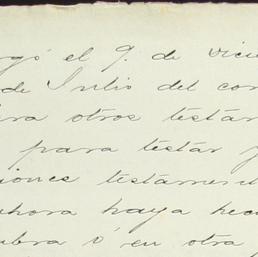 gó el 9. de dicie
de Julio del con
ra otros testar
para testar y
iones testament
ahora haya hec
bra ó en otra